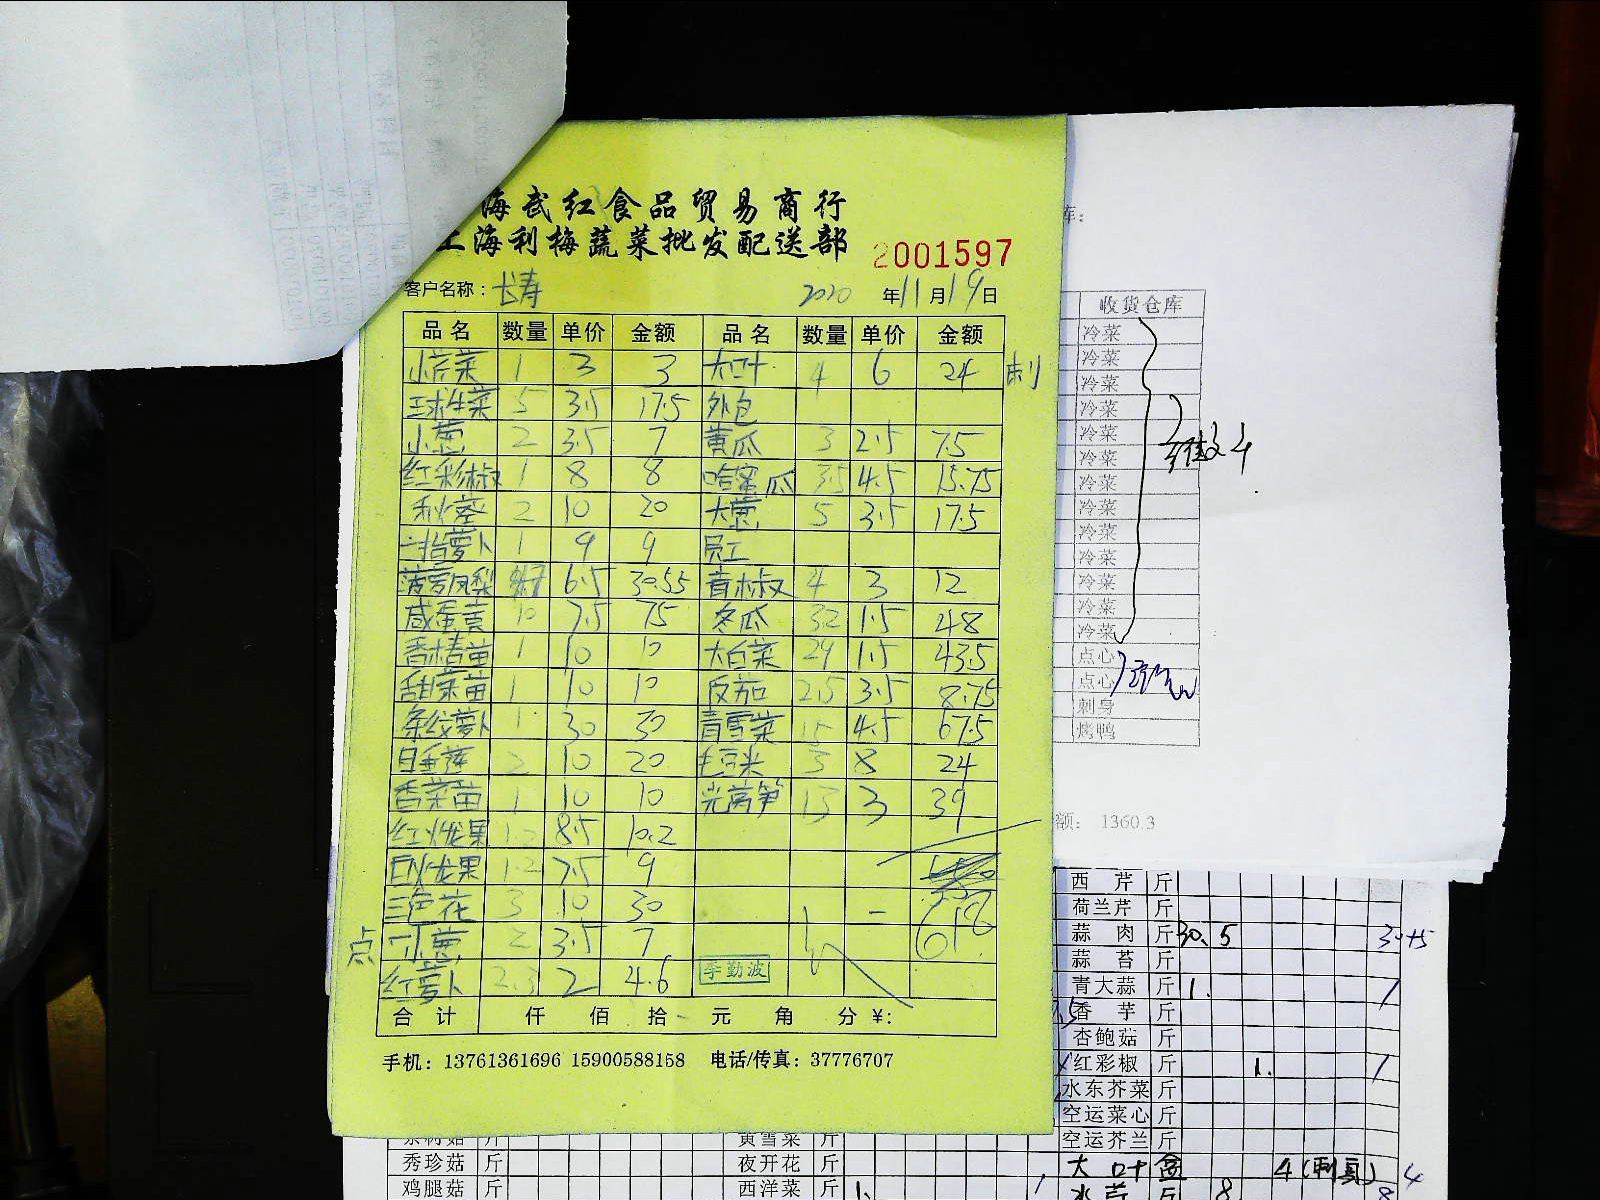 海武红食品贸易商行
上海利梅蔬菜批发配送部
2001597
客户名称：长寿 2020 年 11 月 19 日
品名 数量 单价 金额 品名 数量 单价 金额
小芫荽 1 3 3 大叶 4 6 24 刺
球生菜 5 3.5 17.5 外包
小葱 2 3.5 7 黄瓜 3 2.5 7.5
红彩椒 1 8 8 哈蜜瓜 3.5 4.5 15.75
秋葵 2 10 20 大葱 5 3.5 17.5
手指萝卜 1 9 9 员工
菠萝凤梨 6.5 30.55 青椒 4 3 12
咸蛋黄 10 7.5 75 冬瓜 32 1.5 48
香椿苗 1 10 10 大白菜 29 1.5 43.5
甜菜苗 1 10 10 皮茄 2.5 3.5 8.75
条纹萝卜 1 30 30 青雪菜 15 4.5 67.5
2 10 20 毛豆米 3 8 24
香菜苗 1 10 10 光莴笋 13 3 39
红火龙果 1.2 8.5 10.2
白火龙果 1.2 7.5 9
三色花 3 10 30
点 小葱 2 3.5 7
红萝卜 2.3 2 4.6 李勤波
合计 仟 佰 拾 元 角 分 ¥:
手机：13761361696 15900588158 电话/传真：37776707
库：
收货仓库
冷菜
冷菜
冷菜
冷菜
冷菜
冷菜
冷菜
冷菜
冷菜
冷菜
冷菜
冷菜
冷菜
点心
点心
刺身
烤鸭
额： 1360.3
西芹 斤
荷兰芹 斤
蒜肉 斤 30. 5 30+5
蒜苔 斤
青大蒜 斤 1. 1
香芋 斤
杏鲍菇 斤
红彩椒 斤 1. 1
水东芥菜 斤
空运菜心 斤
空运芥兰 斤
大叶 盒 4(刺身) 4
水芹 斤 8 8
斤 黄雪菜 斤
秀珍菇 斤 夜开花 斤
鸡腿菇 斤 西洋菜 斤 1. 1